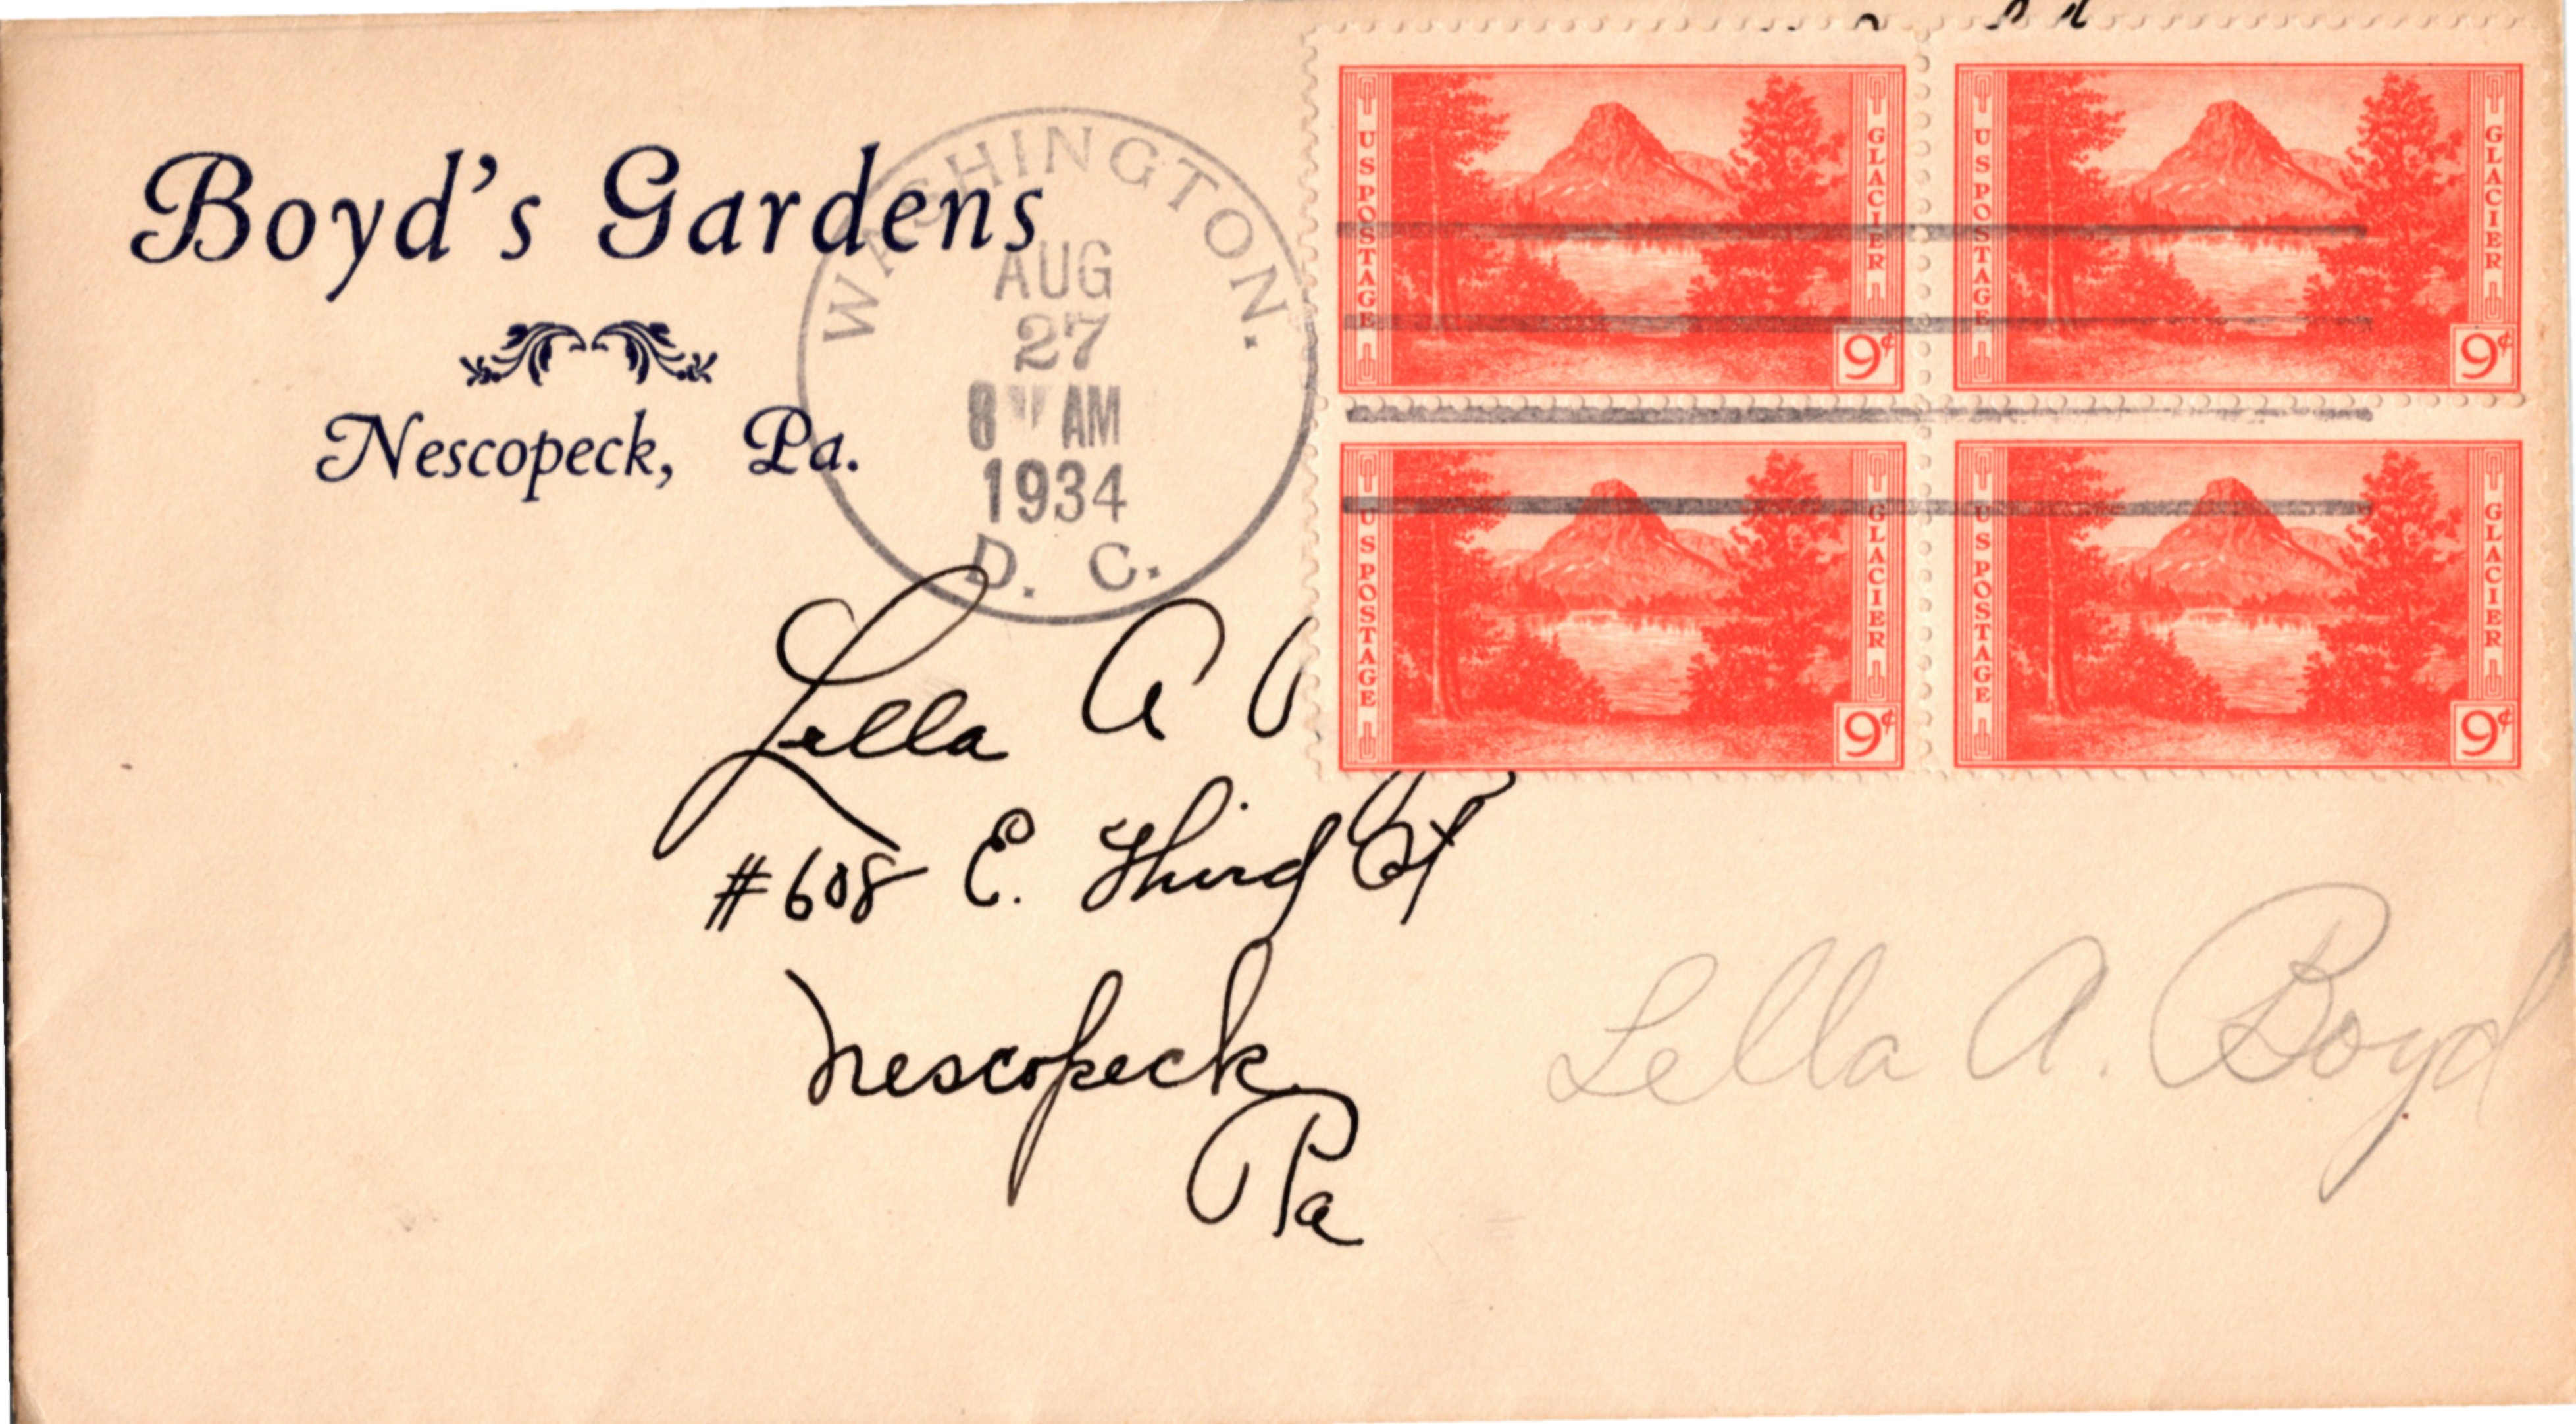 Boyd's Gardens
Nescopeck, Pa.
WASHINGTON.
AUG
27
8 AM
1934
D. C.
U S POSTAGE GLACIER 9¢
U S POSTAGE GLACIER 9¢
U S POSTAGE GLACIER 9¢
U S POSTAGE GLACIER 9¢
Lella A
#608 E. Third St
Nescopeck
Pa
Lella A. Boyd